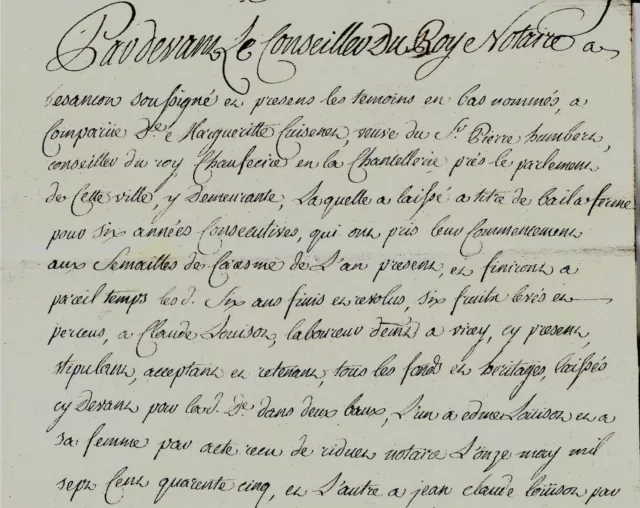 Pardevant Le Conseiller Du Roy Notaire a
besancon soussigné et presens les temoins en bas nommés, a
Comparüe D.e Margueritte Cuisenet, veuve du S.r Pierre humbert,
conseiller du roy Chaufecire en la Chantellerie prés le parlement
de Cette ville, y Demeurante, Laquelle a laissé a titre de bail a ferme
pour six années Consecutives, qui ont pris leur Commencement
aux Semailles de Caresme de L'an present, et finiront a
pareil temps lesd. Six ans finis et revolus, six fruits levés et
percus, a Claude Louison, laboureur a vrey, cy present,
stipulant, acceptant et retenant, tous les fonds et heritages, laissés
cy Devant par lad. De. dans deux baux, L'un a edme Louison et a
sa femme par acte recu de notaire L'onze may mil
sept Cent quarente cinq, et L'autre a jean claude Louison par